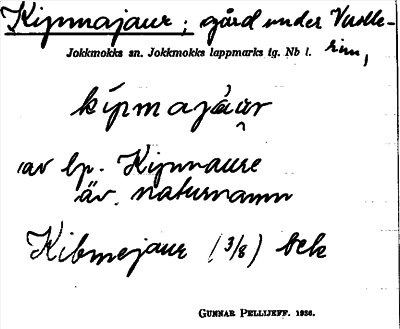 Kipmajaur; gård under Vuolle-
rim,
Jokkmokks sn. Jokkmokks lappmarks tg. Nb l.
kípmajáur
av lp. Kipmaure
äv. naturnamn
Kibmejaur (3/8) bek
GUNNAR PELLIJEFF. 1936.